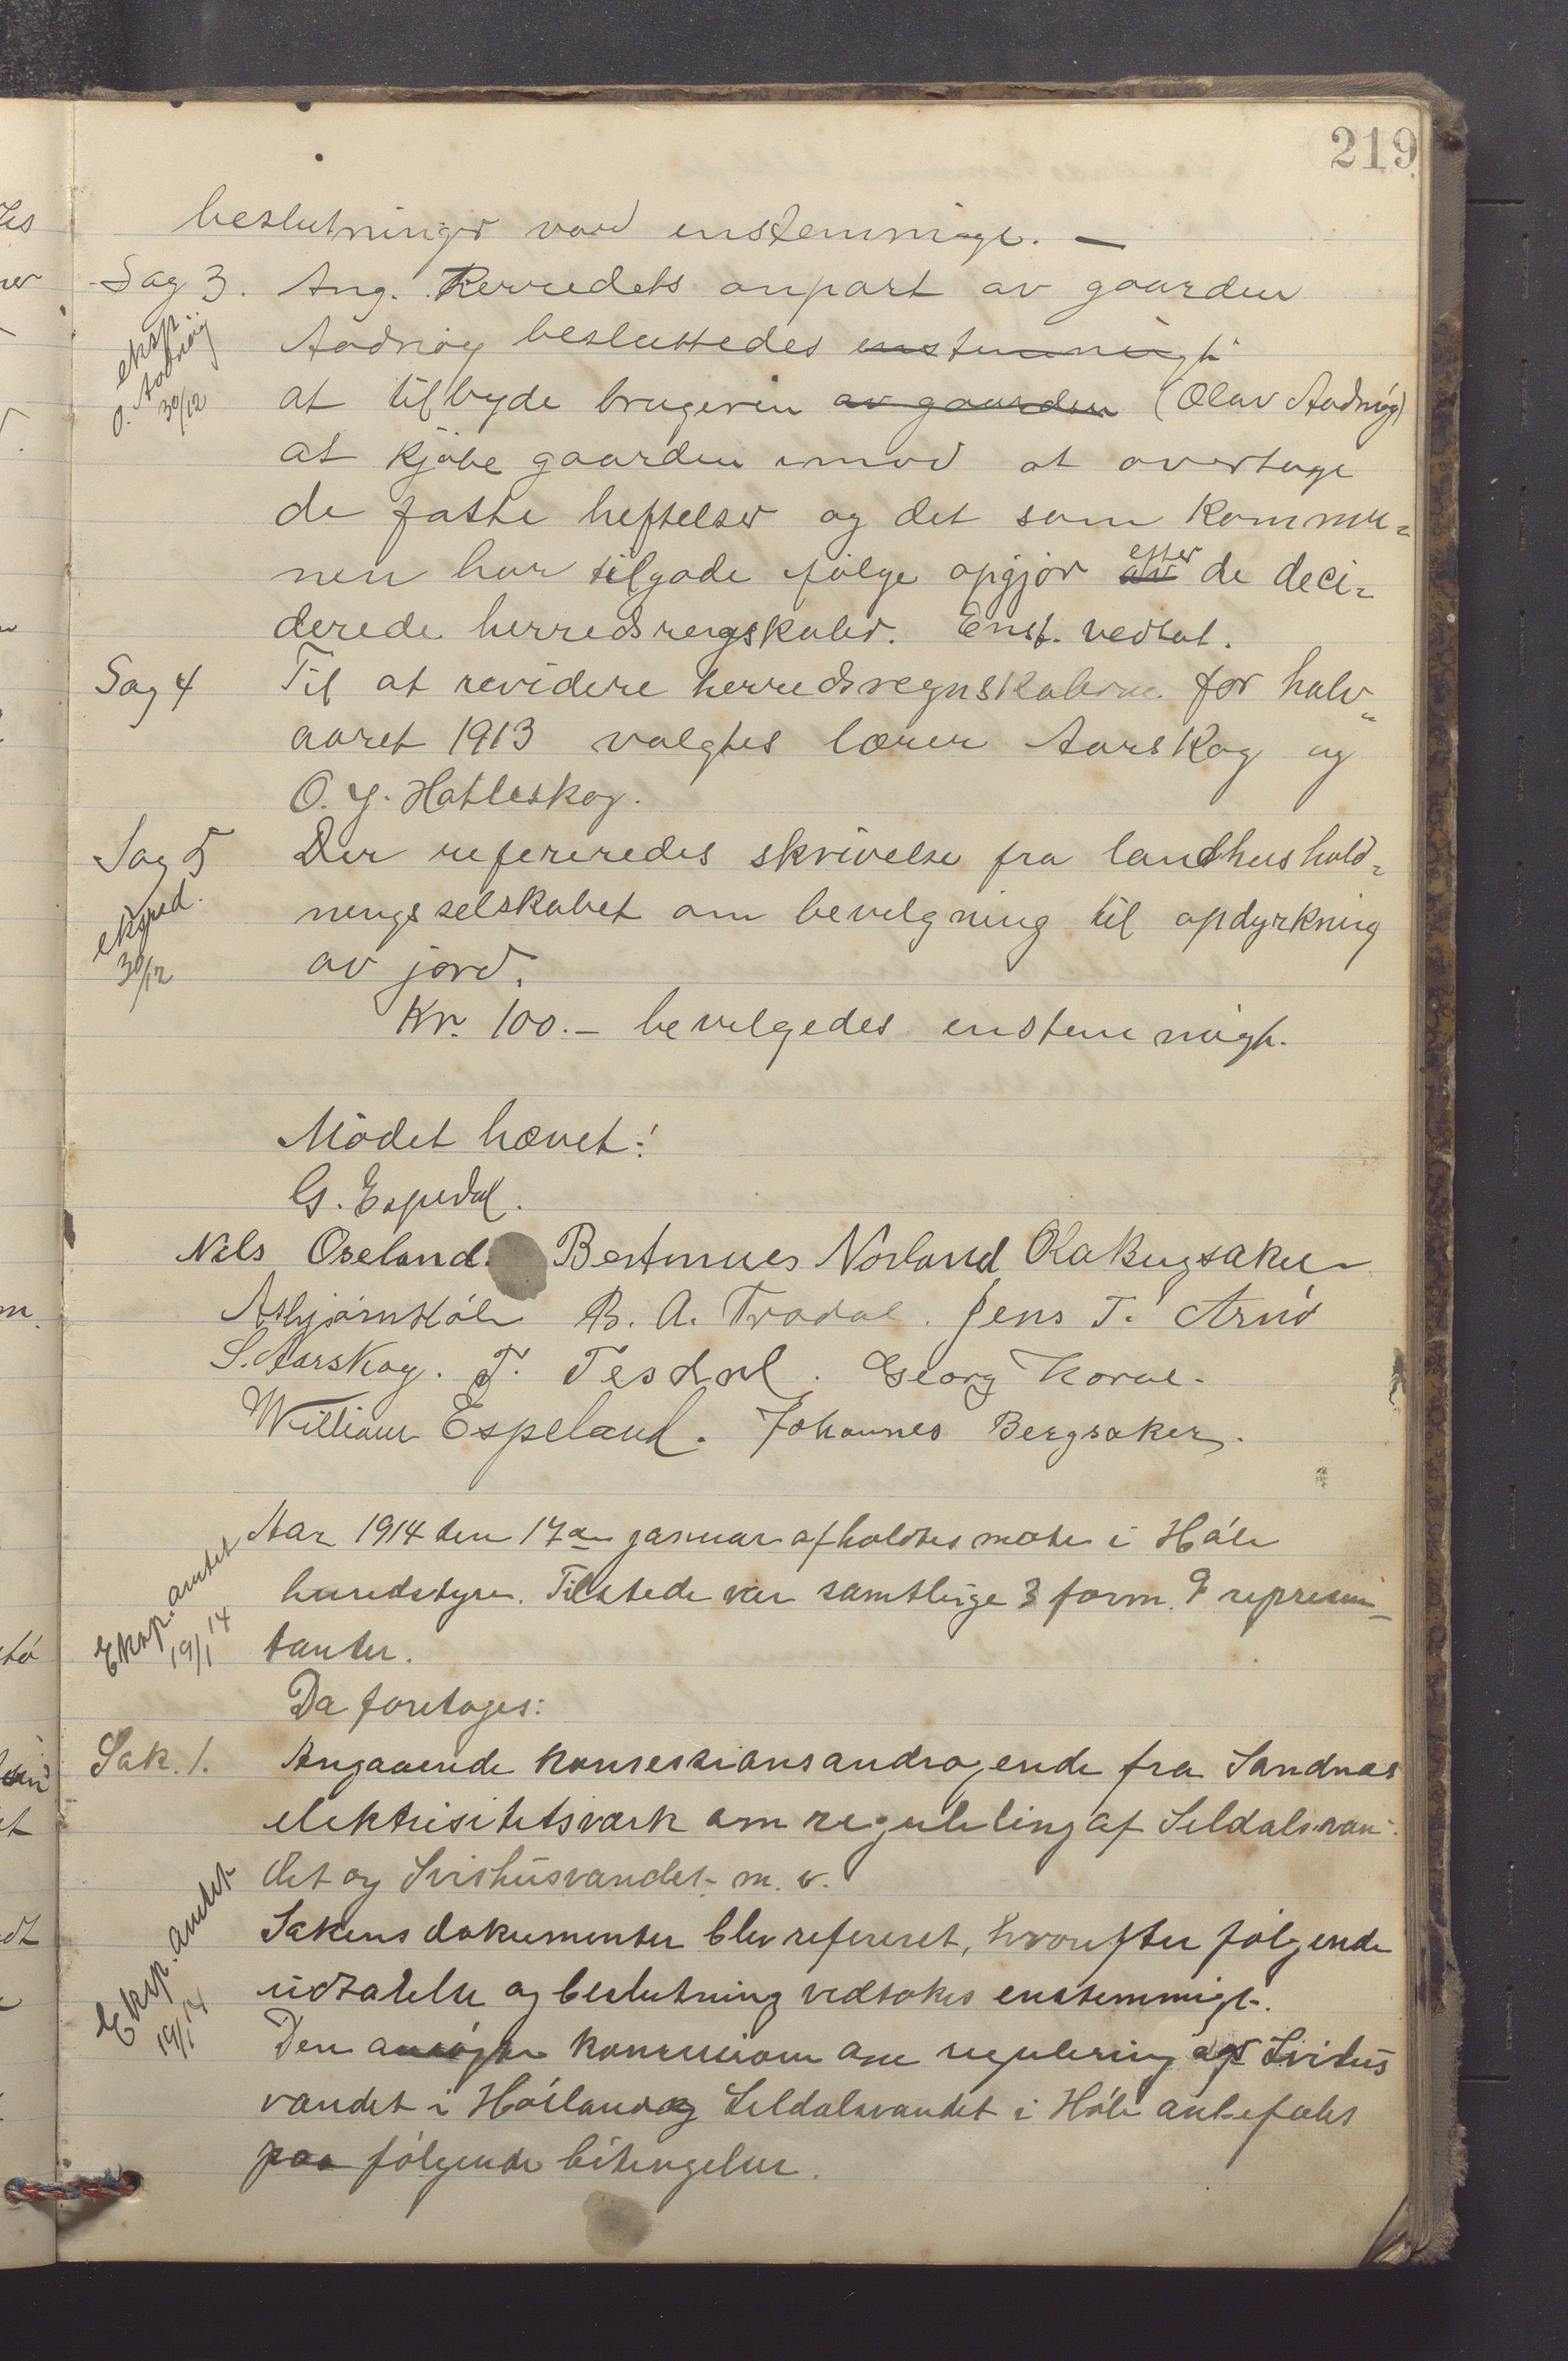 219
beslutninger var enstemmige. —
Sag 3. Ang. Herredets anpart av gaarden
eksp.
O. Aadnöy
30/12
Aadnöy besluttedes enstemmigt
at tilbyde brugeren av gaarden (Olav Aadnöy)
at kjöbe gaarden imod at overtage
de faste heftelser og det som kommu=
nen har tilgode ifölge opgjör av efter de deci=
derede herredsregskaber. Enst. vedtat.
Sag 4 Til at revidere herredsregnskaberne for halv=
aaret 1913 valgtes lærer Aarskog og
O. G. Hatleskog.
Sag 5 Der refereredes skrivelse fra landhushold=
eksped.
30/12
ningsselskabet om bevilgning til opdyrkning
av jord.
Kr. 100.— bevilgedes enstemmigt.
Mödet hævet:!
G. Espedal.
Nils Oseland. Bertinues Norland Ola Bergsaker
Asbjörn Höle B. A. Tradal. Jens T. Arnö
S. Aarskog. T. Tesdal. Georg Hovle.
William Espeland. Johannes Bergsaker.
Aar 1914 den 17de januar afholdtes møte i Höle
Eksp. amtet
19/1 14
herredstyre. Tilstede var samtlige 3 form. 9 represen=
tanter.
Da foretoges:
Sak. 1. Angaaende konsessionsandragende fra Sandnæs
elektrisitetsværk om reguleling af Seldalsvan-
det og Svihusvandet m. v.
Eksp. amtet
19/1 14
Sakens dokumenter blev refereret, hvorefter følgende
udtalelse og beslutning vedtokes enstemmigt.
Den ansögte konsession om regulering af Svihus
vandet i Höiland og Seldalsvandet i Höle anbefales
paa følgende betingelser.